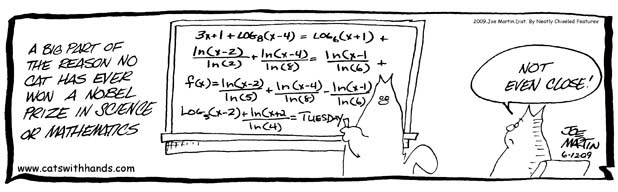 2009.Joe Martin.Dist. By Neatly Chiseled Features
A BIG PART OF
THE REASON NO
CAT HAS EVER
WON A NOBEL
PRIZE IN SCIENCE
OR MATHEMATICS
3x+1 + LOG8(x-4) = LOG6(x+1) +
ln(x-2)/ln(2) + ln(x-4)/ln(8) = ln(x-1/ln(6) +
f(x)= ln(x-2)/ln(5) + ln(x-4)/ln(8) - ln(x-1)/ln(6)
LOG5(x-2)+ln(x+2/ln(4) = TUESDAY
NOT
EVEN CLOSE!
JOE
MARTIN
6-1209
www.catswithhands.com